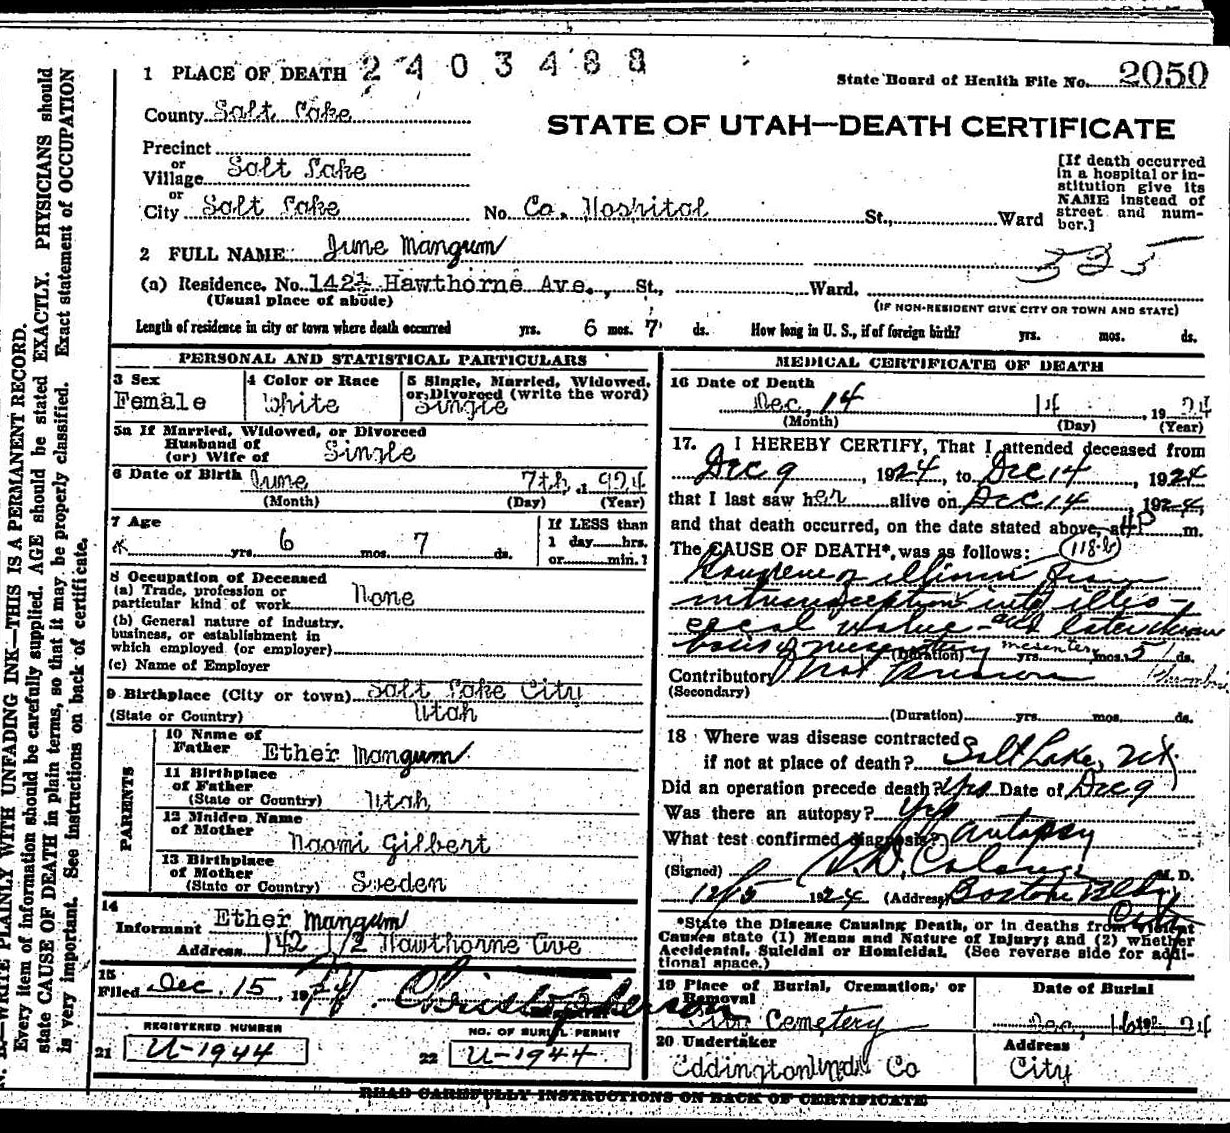 1 PLACE OF DEATH 2403488
State Board of Health File No. 2050
County Salt Lake
STATE OF UTAH—DEATH CERTIFICATE
Precinct
or
Village Salt Lake
or
City Salt Lake No. Co. Hospital St., Ward
[If death occurred
in a hospital or in-
stitution give its
NAME instead of
street and num-
ber.]
2 FULL NAME June Mangum
335
(a) Residence. No. 142½ Hawthorne Ave., St., Ward.
(Usual place of abode)
(IF NON-RESIDENT GIVE CITY OR TOWN AND STATE)
Length of residence in city or town where death occurred yrs. 6 mos. 7 ds. How long in U. S., if of foreign birth? yrs. mos. ds.
PERSONAL AND STATISTICAL PARTICULARS
3 Sex
Female
4 Color or Race
White
5 Single, Married, Widowed,
or Divorced (write the word)
Single
5a If Married, Widowed, or Divorced
Husband of
(or) Wife of Single
6 Date of Birth June 7th, 1924
(Month) (Day) (Year)
7 Age
yrs. 6 mos. 7 ds.
If LESS than
1 day hrs.
or min.?
8 Occupation of Deceased
(a) Trade, profession or
particular kind of work None
(b) General nature of industry,
business, or establishment in
which employed (or employer)
(c) Name of Employer
9 Birthplace (City or town) Salt Lake City
(State or Country) Utah
PARENTS
10 Name of
Father Ether Mangum
11 Birthplace
of Father
(State or Country) Utah
12 Maiden Name
of Mother Naomi Gilbert
13 Birthplace
of Mother
(State or Country) Sweden
14
Informant Ether Mangum
Address 142 1/2 Hawthorne Ave
15
Filed Dec. 15, 1924
REGISTERED NUMBER
21 U-1944
NO. OF BURIAL PERMIT
22 U-1944
MEDICAL CERTIFICATE OF DEATH
16 Date of Death
Dec, 14 14, 1924
(Month) (Day) (Year)
17. I HEREBY CERTIFY, That I attended deceased from
Dec 9, 1924, to Dec 14, 1924
that I last saw her alive on Dec 14, 1924,
and that death occurred, on the date stated above, at 4 P m.
The CAUSE OF DEATH*, was as follows: 118-b
Gangrene of from
into
and later
of mesentery mesentery
(Duration) yrs. mos. 5 ds.
Contributory
(Secondary)
(Duration) yrs. mos. ds.
18 Where was disease contracted
if not at place of death? Salt Lake, Ut
Did an operation precede death? Yes Date of Dec 9
Was there an autopsy? Yes
What test confirmed diagnosis? Autopsy
(Signed) M. D.
12/15 1924 (Address) Boston Bldg
City
*State the Disease Causing Death, or in deaths from Violent
Causes state (1) Means and Nature of Injury; and (2) whether
Accidental, Suicidal or Homicidal. (See reverse side for addi-
tional space.)
19 Place of Burial, Cremation, or
Removal
City Cemetery
Date of Burial
Dec, 16th 24
20 Undertaker
Eddington Und. Co
Address
City
READ CAREFULLY INSTRUCTIONS ON BACK OF CERTIFICATE
WRITE PLAINLY WITH UNFADING INK—THIS IS A PERMANENT RECORD.
Every item of information should be carefully supplied. AGE should be stated EXACTLY. PHYSICIANS should
state CAUSE OF DEATH in plain terms, so that it may be properly classified. Exact statement of OCCUPATION
is very important. See instructions on back of certificate.